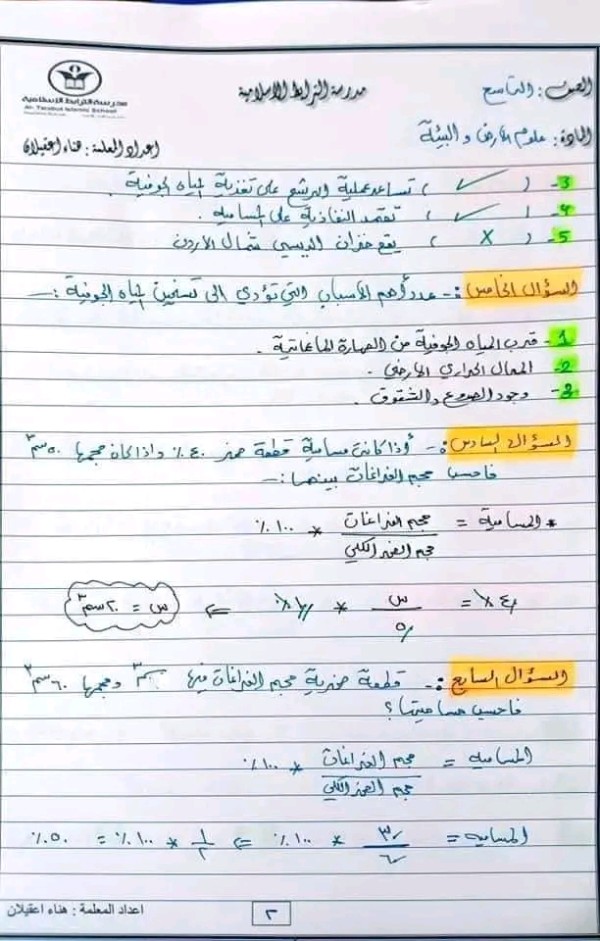 مدرسة الترابط الاسلامية
Al- Tarabut Islamic School
الصف : التاسع
مدرسة الترابط الاسلامية
المادة : علوم الارض والبيئة
اعداد المعلمة : هناء اعقيلان
3- ( ✓ ) تساعد عملية الترشح على تغذية المياه الجوفية .
4- ( ✓ ) تعتمد النفاذية على المسامية .
5- ( X ) يقع خزان الديسي شمال الاردن
السؤال الخامس :- عدد أهم الأسباب التي تؤدي الى تسخين المياه الجوفية :-
1- قرب المياه الجوفية من الصهارة الماغماتية .
2- الممال الحراري الارضي .
3- وجود الصدوع والشقوق .
السؤال السادس :- أذا كانت مسامية قطعة صخر ٤٠٪ واذا كان حجمها ٥٠سم٣
فاحسب حجم الفراغات بينهما :-
* المسامية = حجم الفراغات * ١٠٠٪
حجم الصخر الكلي
٤٠٪ = س * ١٠٠٪ ⇐ س = ٢٠سم٣
٥٠
السؤال السابع :- قطعة صخرية حجم الفراغات فيها ٣٠سم٣ وحجمها ٦٠سم٣
فاحسب مساميتها ؟
المسامية = حجم الفراغات * ١٠٠٪
حجم الصخر الكلي
المسامية = ٣٠ * ١٠٠٪ ⇐ ١ * ١٠٠٪ = ٥٠٪
٦٠ ٢
اعداد المعلمة : هناء اعقيلان
٢